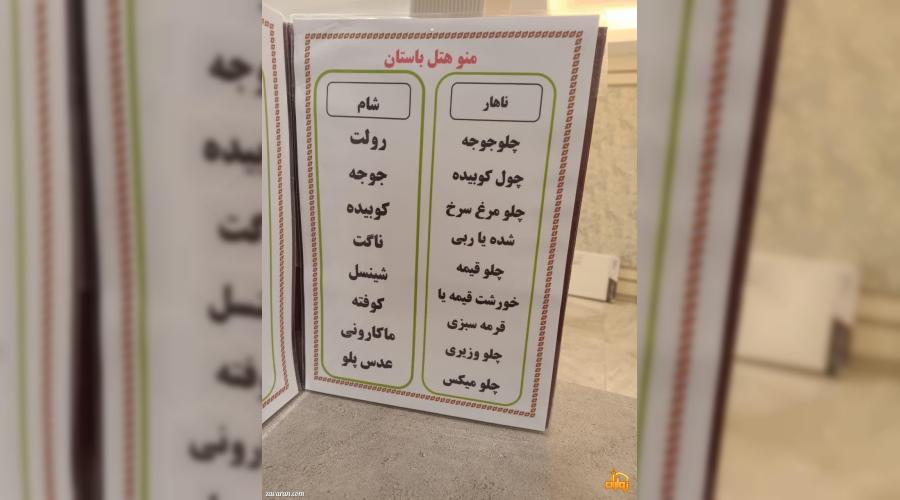 منو هتل باستان
ناهار
چلوجوجه
چول کوبیده
چلو مرغ سرخ
شده یا ربی
چلو قیمه
خورشت قیمه یا
قرمه سبزی
چلو وزیری
چلو میکس
شام
رولت
جوجه
کوبیده
ناگت
شینسل
کوفته
ماکارونی
عدس پلو
zavaran.com
زوارن